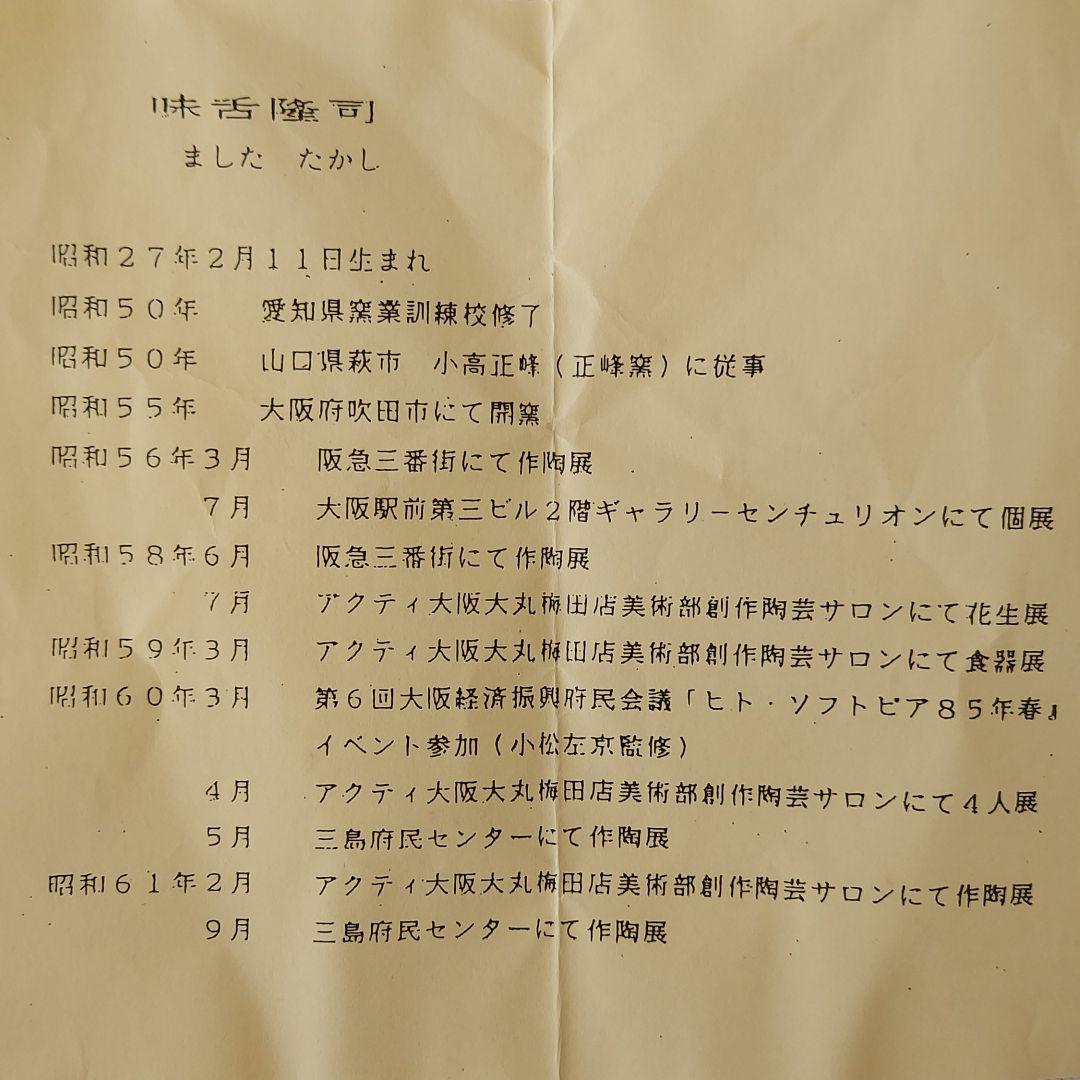 味舌隆司
ました　たかし
昭和２７年２月１１日生まれ
昭和５０年　　愛知県窯業訓練校修了
昭和５０年　　山口県萩市　小高正峰（正峰窯）に従事
昭和５５年　　大阪府吹田市にて開窯
昭和５６年３月　　阪急三番街にて作陶展
７月　　大阪駅前第三ビル２階ギャラリーセンチュリオンにて個展
昭和５８年６月　　阪急三番街にて作陶展
７月　　アクティ大阪大丸梅田店美術部創作陶芸サロンにて花生展
昭和５９年３月　　アクティ大阪大丸梅田店美術部創作陶芸サロンにて食器展
昭和６０年３月　　第６回大阪経済振興府民会議「ヒト・ソフトピア８５年春』
イベント参加（小松左京監修）
４月　　アクティ大阪大丸梅田店美術部創作陶芸サロンにて４人展
５月　　三島府民センターにて作陶展
昭和６１年２月　　アクティ大阪大丸梅田店美術部創作陶芸サロンにて作陶展
９月　　三島府民センターにて作陶展